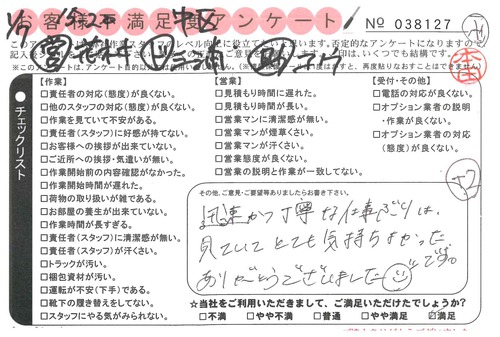 お客様不満足度アンケート
№ 038127
【作業】
□責任者の対応(態度)が良くない。
□他のスタッフの対応(態度)が良くない。
□作業を見ていて不安がある。
□責任者(スタッフ)に好感が持てない。
□お客様への挨拶が出来ていない。
□ご近所への挨拶・気遣いが無い。
□作業開始前の内容確認がなかった。
□作業開始時間が遅れた。
□荷物の取り扱いが雑である。
□お部屋の養生が出来ていない。
□作業時間が長すぎる。
□責任者(スタッフ)に清潔感が無い。
□責任者(スタッフ)が汗くさい。
□トラックが汚い。
□梱包資材が汚い。
□運転が不安(下手)である。
□靴下の履き替えをしてない。
□スタッフにやる気がみられない。
【営業】
□見積もり時間に遅れた。
□見積もり時間が長い。
□営業マンに清潔感が無い。
□営業マンが煙草くさい。
□営業マンが汗くさい。
□営業態度が良くない。
□営業の説明と作業が一致してない。
【受付・その他】
□電話の対応が良くない。
□オプション業者の説明
・作業が良くない。
□オプション業者の対応
(態度)が良くない。
チェックリスト
その他、ご意見・ご要望等ありましたらお書き下さい。
迅速かつ丁寧な仕事ぶりは、
見ていてとても気持ちよかった
です。
ありがとうございました
★当社をご利用いただきまして、ご満足いただけたでしょうか?
□不満 □やや不満 □普通 □やや満足 ☑満足